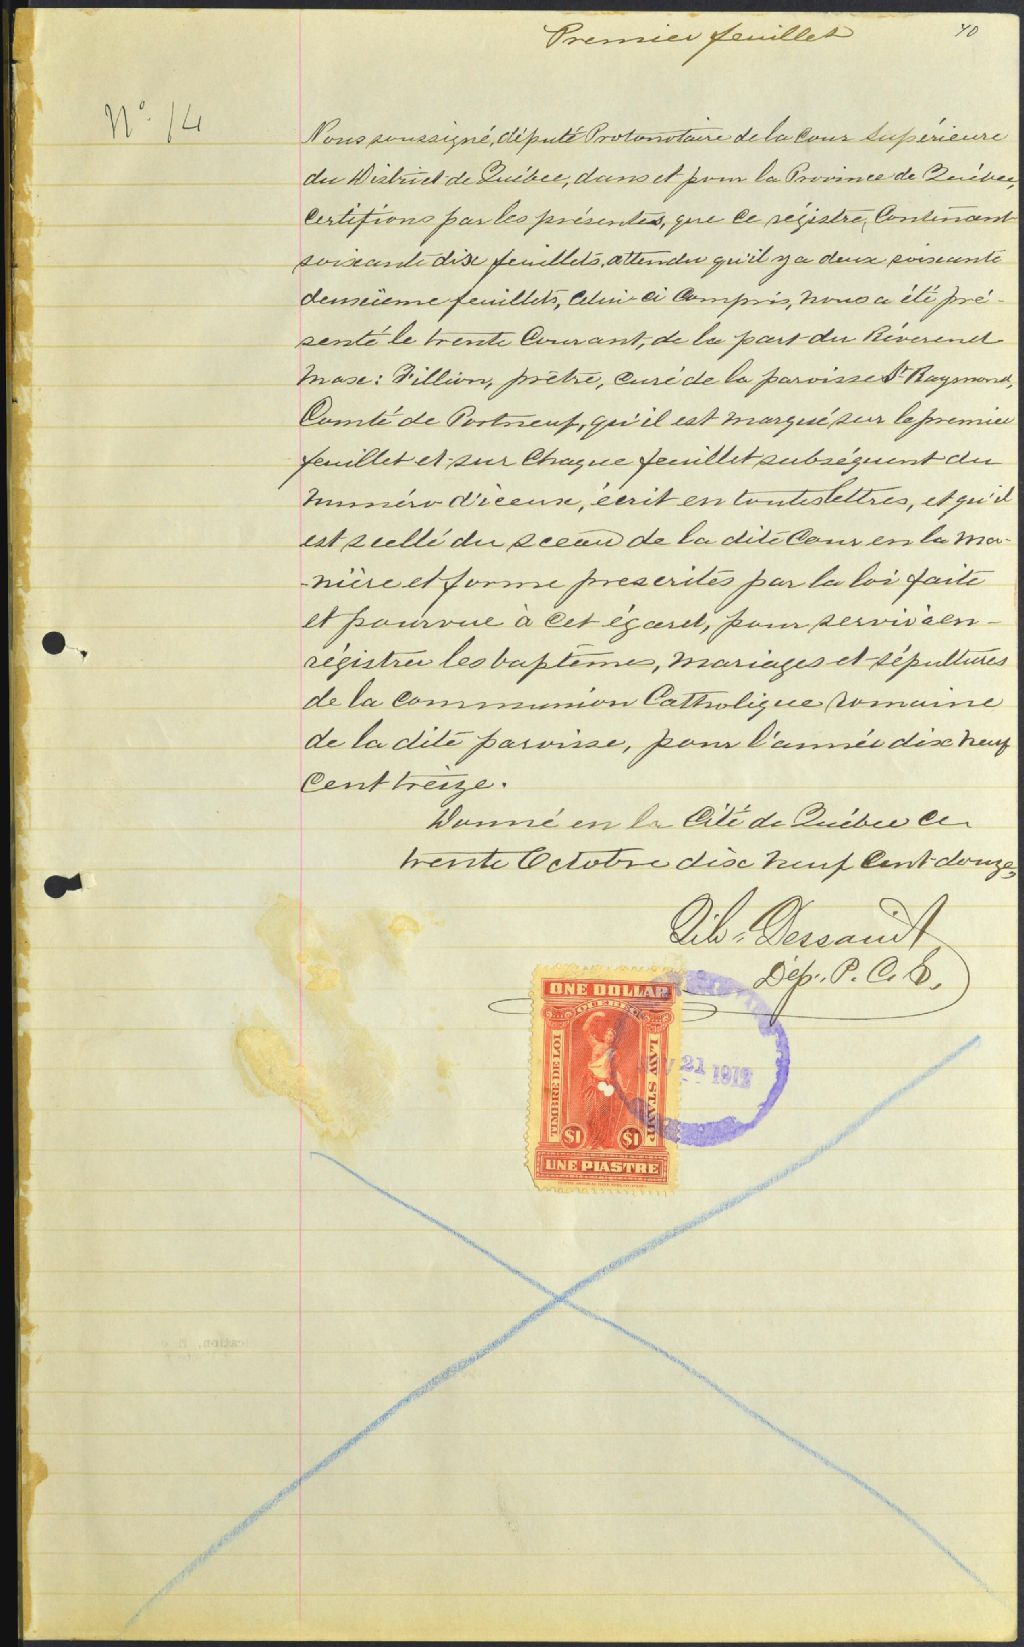 Premier feuillet
70
N° 14
Nous soussigné, député Protonotaire de la Cour Supérieure
du District de Québec, dans et pour la Province de Québec,
Certifions par les présentes, que ce régistre, Contenant
soixante dix feuillets, attendu qu'il y a deux soixante
deuxième feuillets, celui-ci Compris, nous a été pré-
senté le trente Courant, de la part du Révérend
Max: Fillion, prêtre, curé de la paroisse St Raymond,
Comté de Portneuf, qu'il est marqué sur le premier
feuillet et sur Chaque feuillet subséquent du
numéro d'iceux, écrit en toutes lettres, et qu'il
est scellé du sceau de la dite Cour en la ma-
-nière et forme prescrites par la loi faite
et pourvue à cet égard, pour servir à en-
régistrer les baptêmes, mariages et sépultures
de la Communion Catholique romaine
de la dite paroisse, pour l'année dix neuf
Cent treize.
Donné en la Cité de Québec ce
trente Octobre dix neuf Cent douze,
Dessault
Dép. P. C. S.
ONE DOLLAR
QUEBEC
TIMBRE DE LOI
LAW STAMP
21 1912
$1 $1
UNE PIASTRE